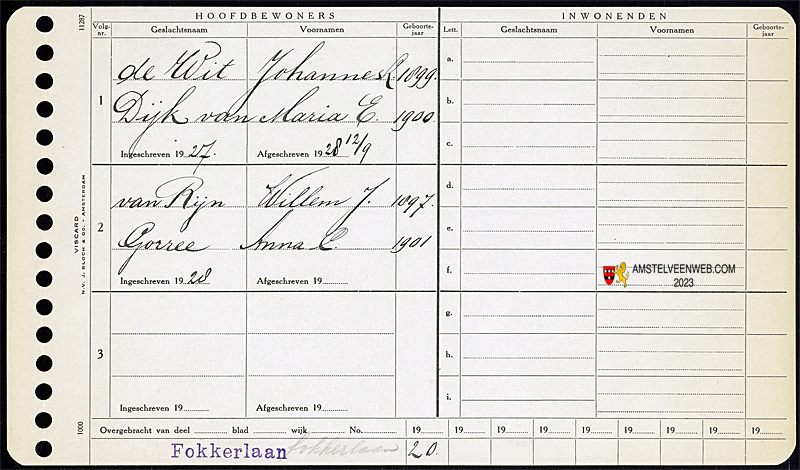 HOOFDBEWONERS INWONENDEN
Volg-nr. Geslachtsnaam Voornamen Geboorte-jaar Lett. Geslachtsnaam Voornamen Geboorte-jaar
11287
1
de Wit Johannes R. 1899.
Dijk van Maria E. 1900
Ingeschreven 19 27. Afgeschreven 19 28 12/9
a.
b.
c.
VISCARD
N.V. J. BLOCH & CO. AMSTERDAM
2
van Rijn Willem J. 1897.
Gorree Anna C. 1901
Ingeschreven 19 28 Afgeschreven 19
d.
e.
f.
AMSTELVEENWEB.COM
2023
3
Ingeschreven 19 Afgeschreven 19
g.
h.
i.
1000
Overgebracht van deel blad wijk No. 19 19 19 19 19 19 19 19 19
Fokkerlaan Fokkerlaan 20.